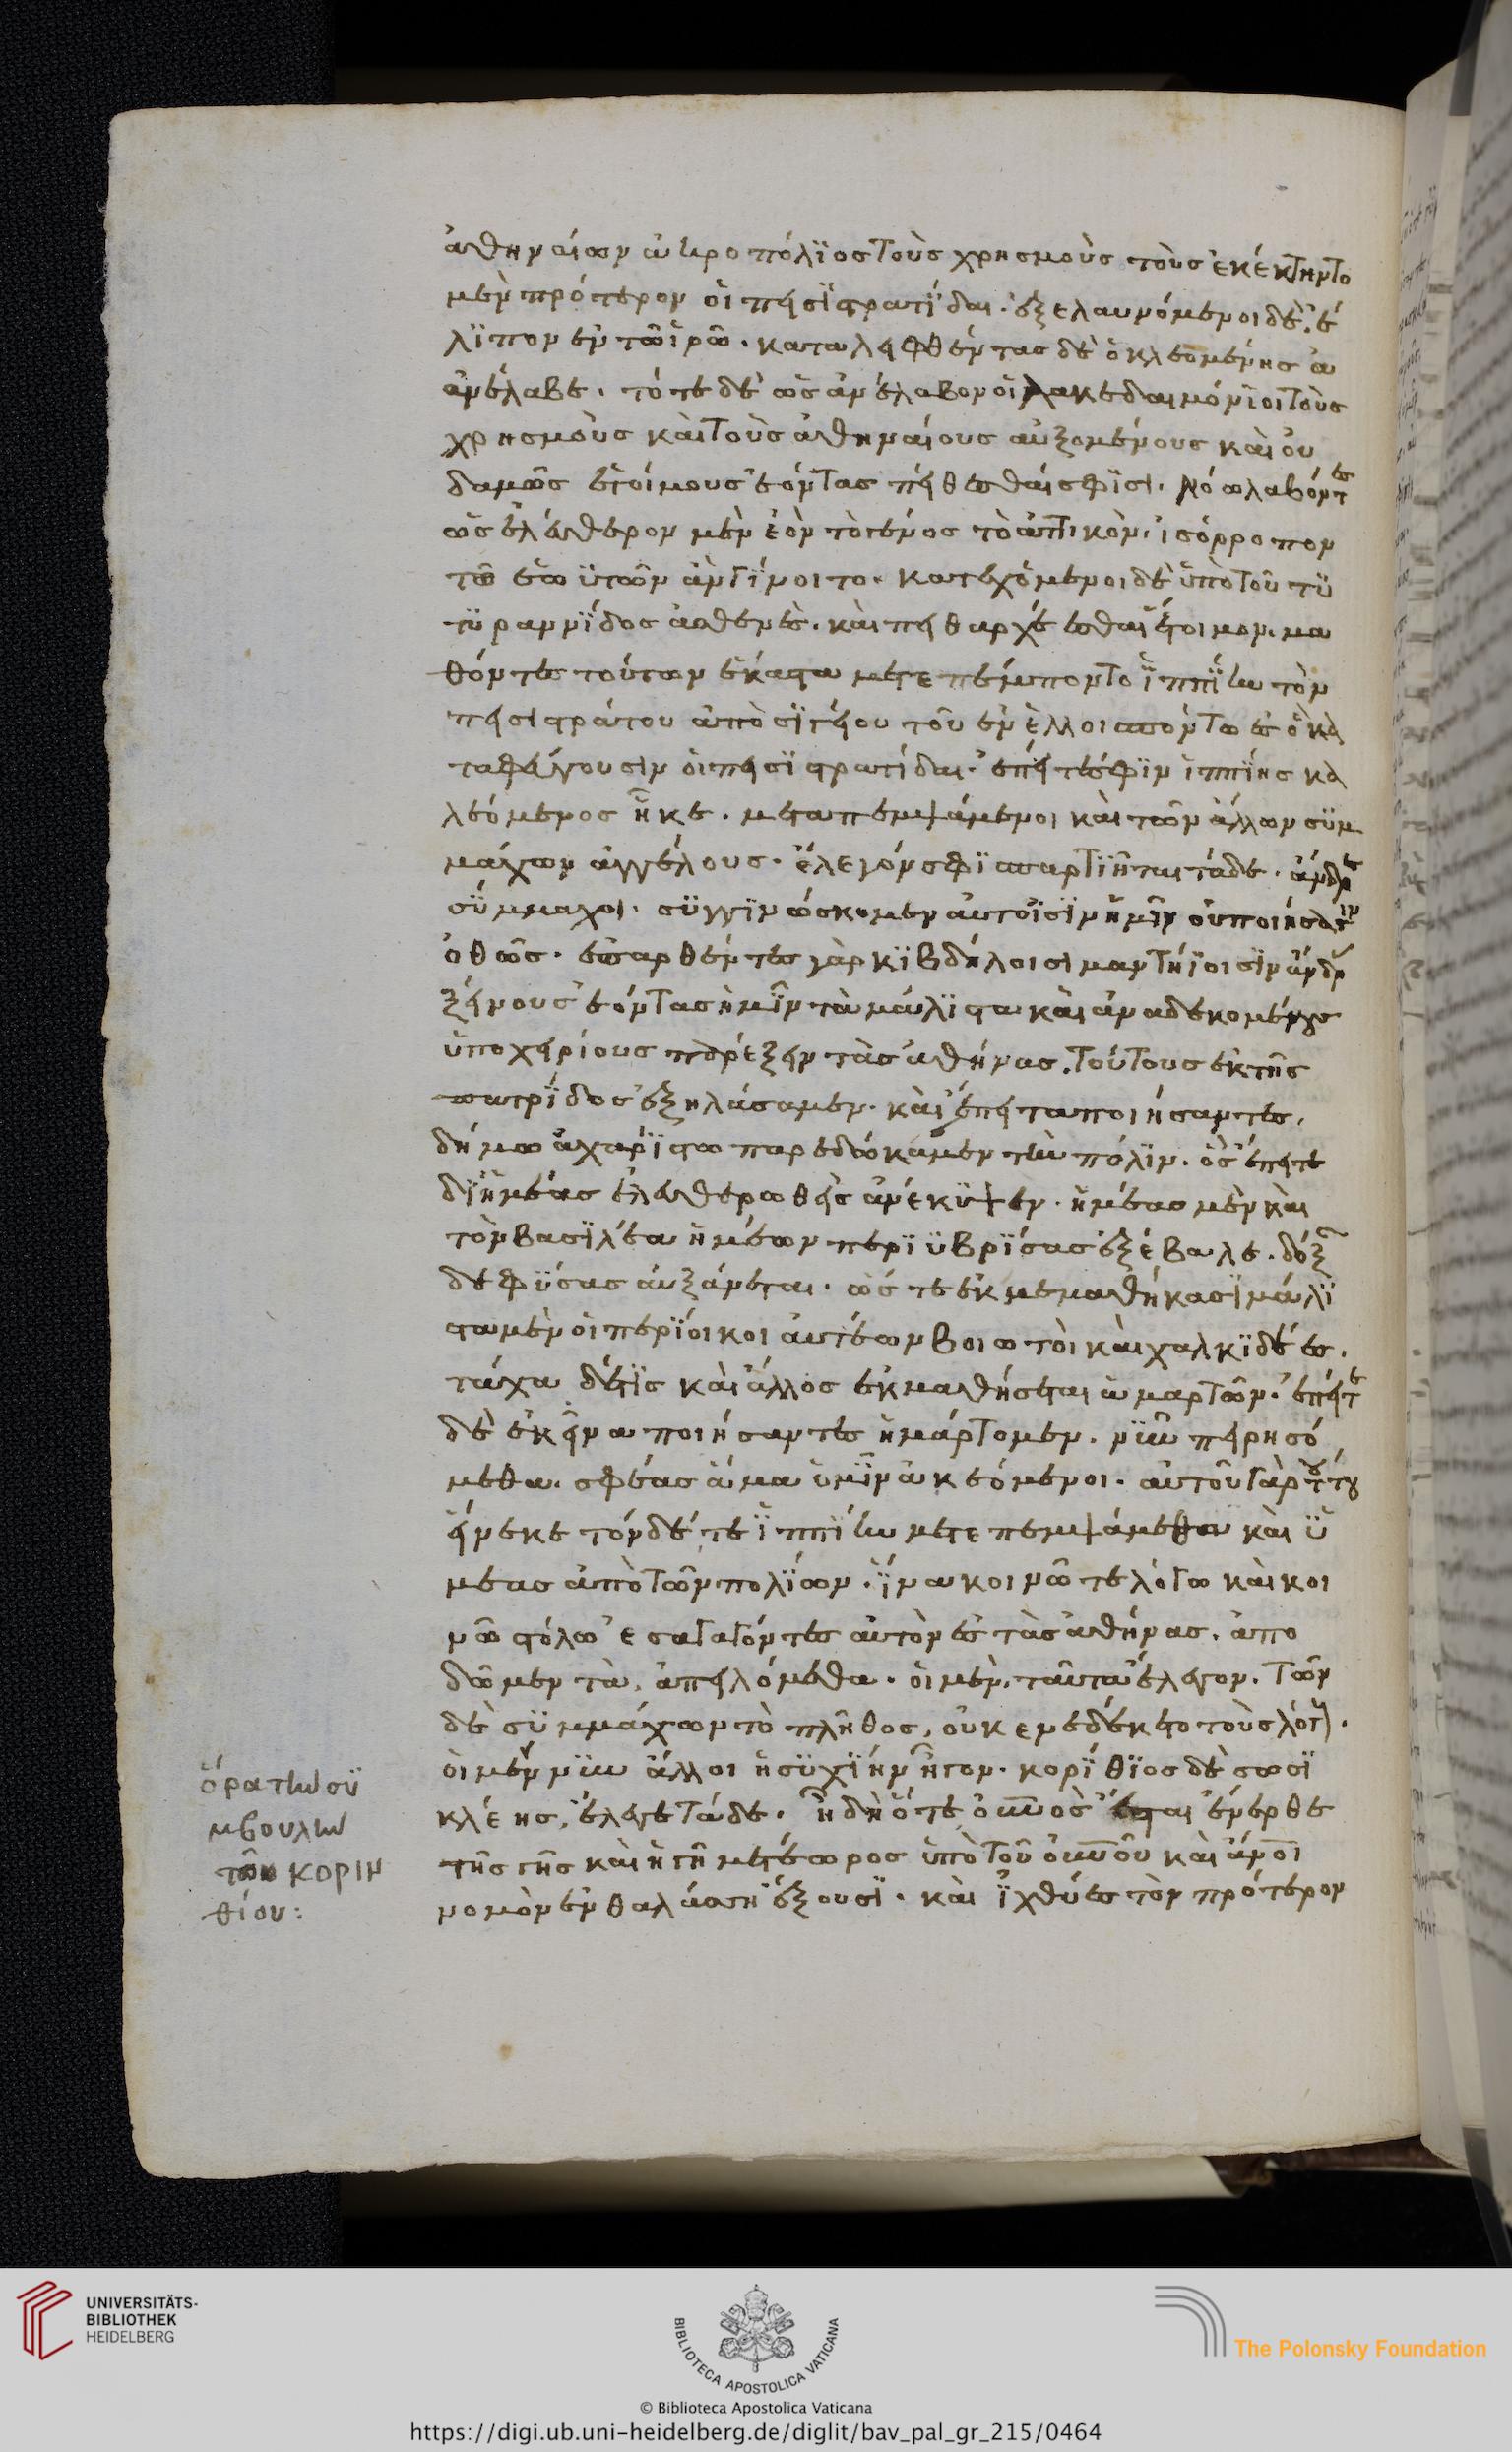 ἀθηναίων ἀκροπόλϊος τοὺς χρησμοὺς τοὺς ἐκέκτηντο
μὲν πρότερον οἱ πεισϊστρατίδαι· ἐξελαυνόμενοι δὲ ἔ
λϊπον ἐν τῶ ἱρῶ. καταλειφθέντας δὲ ὁ κλεομένης ἀ
ἀνέλαβε. τότε δὲ ὡς ἀνέλαβον οἱ λακεδαιμόνϊοι τοὺς
χρησμοὺς καὶ τοὺς ἀθηναίους αὐξομένους καὶ οὐ
δαμῶς ἑτοίμους ἐόντας πείθεσθαί σφϊσι. νόω λαβόντες
ὡς ἐλεύθερον μὲν ἐὸν τὸ γένος τὸ ἀττικὸν. ἰσόρροπον
τῶ ἑωϋτῶν ἂν γίνοιτο. κατεχόμενοι δὲ ὑπὸ τοῦ τϋ
τϋραννΐδος ἀσθενὲς. καὶ πειθαρχέεσθαι ἕτοιμον. μα
θόντες τούτων ἕκαστα μετεπέμποντο ἱππΐην τὸν
πεισιστράτου ἀπὸ σϊγείου τοῦ ἐν ἑλλοισπόντω ἐς ὃ κα
ταφεύγουσιν οἱ πεισϊστρατίδαι. ἐπείτέ σφϊν ἱππΐης κα
λεόμενος ἧκε. μεταπεμψάμενοι καὶ τῶν ἄλλων σϋμ
μάχων ἀγγέλους. ἔλεγόν σφϊ σπαρτϊῆται τάδε. ἄνδρες
σΰμμαχοι. σϋγγϊνώσκομεν αὐτοῖσϊν ἡμῖν οὐ ποιήσασιν
ὀθῶς. ἐπαρθέντες γὰρ κϊβδήλοισι μαντηΐοισϊν ἄνδρας
ξείνους ἐόντας ἡμῖν τὰ μάλϊστα καὶ ἀναδεκομένους
ὑποχειρίους παρέξειν τὰς ἀθήνας. τούτους ἐκ τῆς
πατρΐδος ἐξηλάσαμεν. καὶ ἔπειτα ποιήσαντες.
δήμω ἀχαρΐστω παρεδώκαμεν τὴν πόλϊν. ὃς ἐπείτε
δϊ ἡμέας ἐλευθερωθεὶς ἀνέκϋψεν. ἡμέας μὲν καὶ
τὸν βασϊλέα ἡμέων περϊϋβρΐσας ἐξέβαλε. δόξαν
δὲ φΰσας αὐξάνεται. ὥστε ἐκμεμαθήκασϊ μάλϊ
στα μὲν οἱ περΐοικοι αὐτέων βοιωτοὶ καὶ χαλκϊδέες.
τάχα δέ τϊς καὶ ἄλλος ἐκμαθήσεται ἁμαρτῶν. ἐπείτε
δὲ ἐκεῖνα ποιήσαντες ἡμάρτομεν. νῦν πειρησό
μεθα. σφέας ἅμα ὑμῖν ἀκεόμενοι. αὐτοῦ γὰρ τούτου
εἵνεκε τόνδέ τε ἱππΐην μετεπεμψάμεθα καὶ ϋ
μέας ἀπὸ τῶν πολΐων. ἵνα κοινῶ τε λόγω καὶ κοι
νῶ στόλω ἐσαγαγόντες αὐτὸν ἐς τὰς ἀθήνας. ἀπο
δῶμεν τὰ. ἀπειλόμεθα. οἱ μὲν. ταῦτα ἔλεγον. τῶν
δὲ σϋμμάχων τὸ πλῆθος, οὐκ ἐνεδέκετο τοὺς λόγους.
οἱ μέν νϋν ἄλλοι ἡσϋχΐην ἦγον. κορΐθϊος δὲ σωσϊ
κλέης, ἔλεγε τάδε. ἦ δὴ ὅτε οὐνὸς ἔσται ἔνερθε
τῆς γῆς καὶ ἡ γῆ μετέωρος ὑπὸ τοῦ οὐνοῦ καὶ ἄνοι
νομὸν ἐν θαλάσση ἕξουσϊ. καὶ ἰχθύες τὸν πρότερον
ὅρα τὴν σϋ
μβουλὴν
τῶν κοριν
θίου:
UNIVERSITÄTS-
BIBLIOTHEK
HEIDELBERG
BIBLIOTECA APOSTOLICA VATICANA
The Polonsky Foundation
© Biblioteca Apostolica Vaticana
https://digi.ub.uni-heidelberg.de/diglit/bav_pal_gr_215/0464